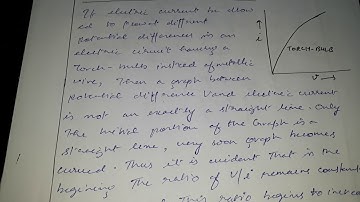 If electric current be allow
ed to flow at different
potential differences in an
electric circuit having a
Torch-bulb instead of metallic
wire, Then a graph between
potential difference V and electric current
is not an exactly a straight line. Only
The initial portion of the Graph is a
straight line, very soon graph becomes
curved. Thus it is evident that in the
begining The ratio of V/i remains constant
This ratio begins to increa
i
TORCH-BULB
V